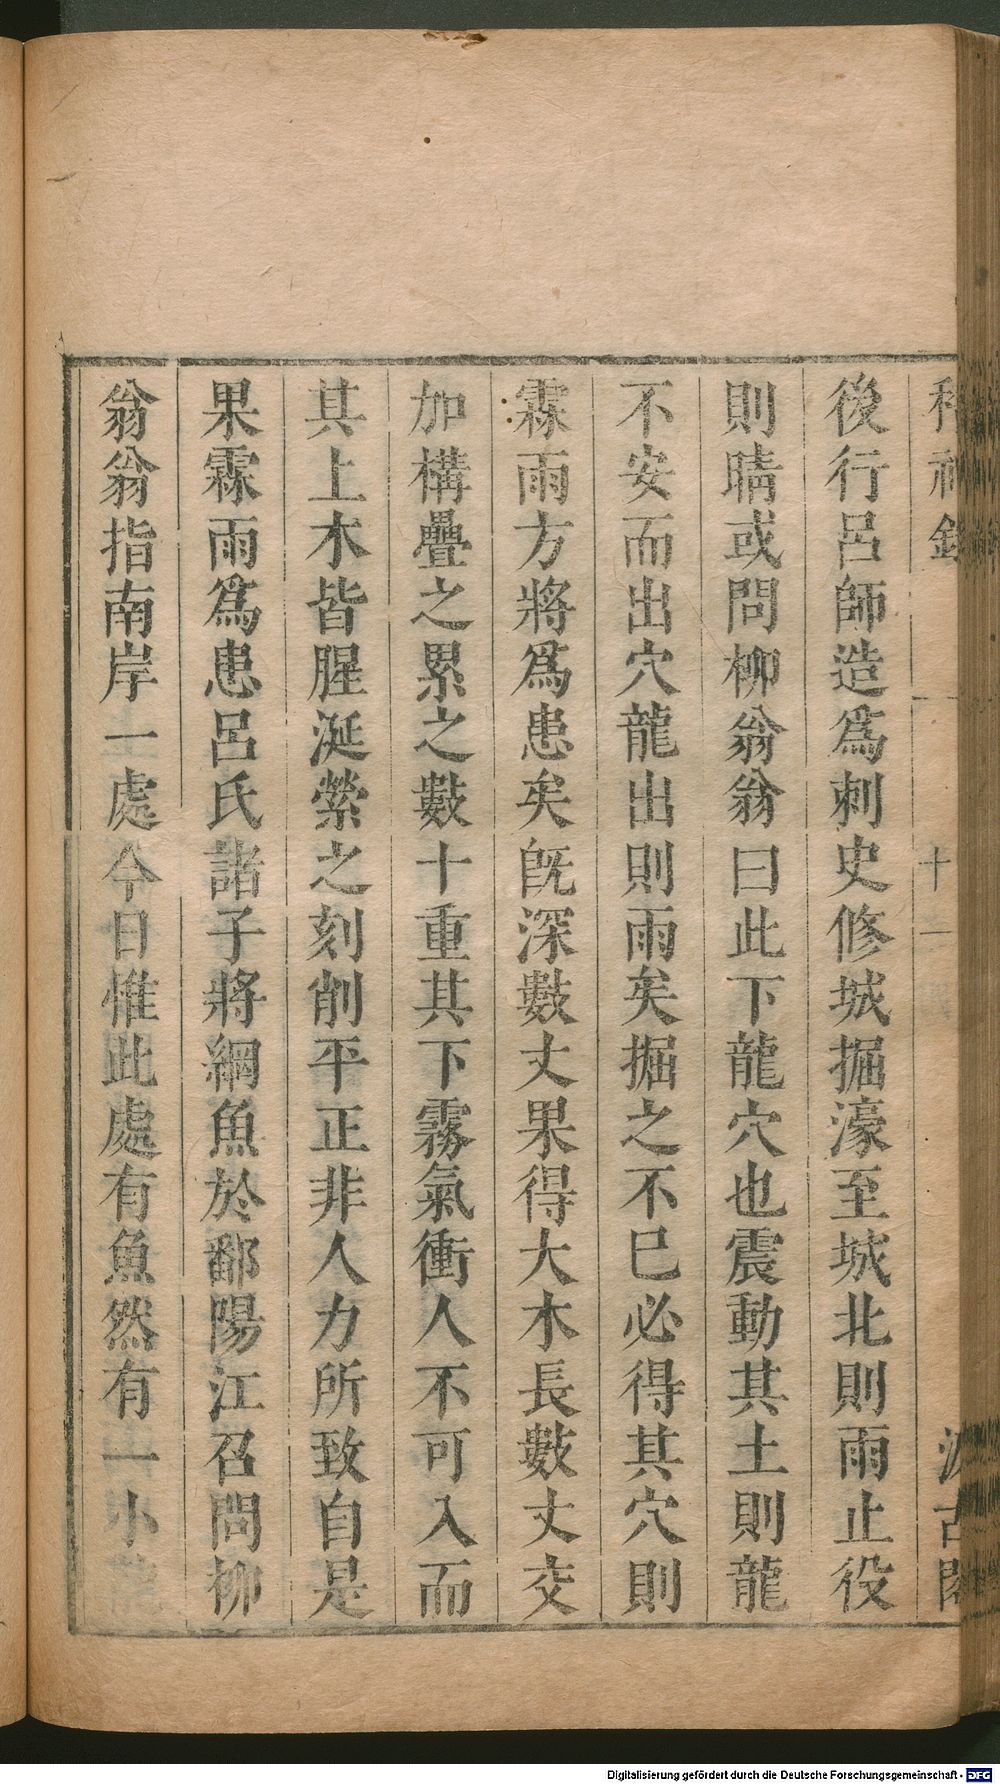 稽神錄
十一
汲古閣
後行呂師造爲刺史修城掘濠至城北則雨止役
則晴或問柳翁翁曰此下龍穴也震動其土則龍
不安而出穴龍出則雨矣掘之不已必得其穴則
霖雨方將爲患矣旣深數丈果得大木長數丈交
加構疊之累之數十重其下霧氣衝人不可入而
其上木皆腥涎縈之刻削平正非人力所致自是
果霖雨爲患呂氏諸子將網魚於鄱陽江召問柳
翁翁指南岸一處今日惟此處有魚然有一小
Digitalisierung gefördert durch die Deutsche Forschungsgemeinschaft - DFG